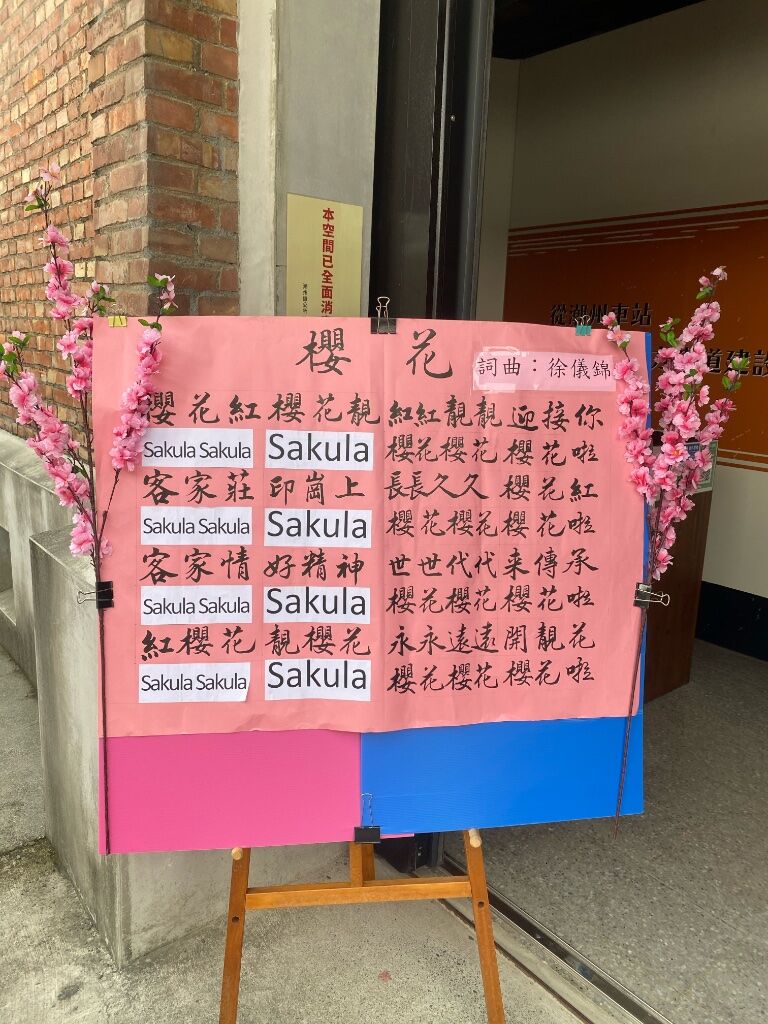 本空間已全面消
從潮州車站
道建設
櫻花
詞曲：徐儀錦
櫻花紅櫻花靚 紅紅靚靚迎接你
Sakula Sakula Sakula 櫻花櫻花 櫻花啦
客家莊 印崗上 長長久久 櫻花紅
Sakula Sakula Sakula 櫻花櫻花 櫻花啦
客家情 好精神 世世代代 来傳承
Sakula Sakula Sakula 櫻花櫻花 櫻花啦
紅櫻花 靚櫻花 永永遠遠開靚花
Sakula Sakula Sakula 櫻花櫻花 櫻花啦